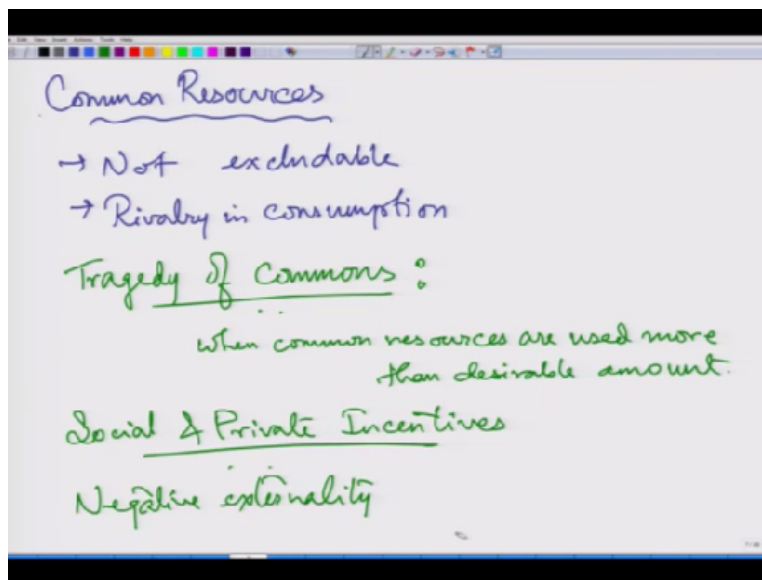 Common Resources
→ Not excludable
→ Rivalry in consumption
Tragedy of Commons :
when common resources are used more
than desirable amount.
Social & Private Incentives
Negative externality